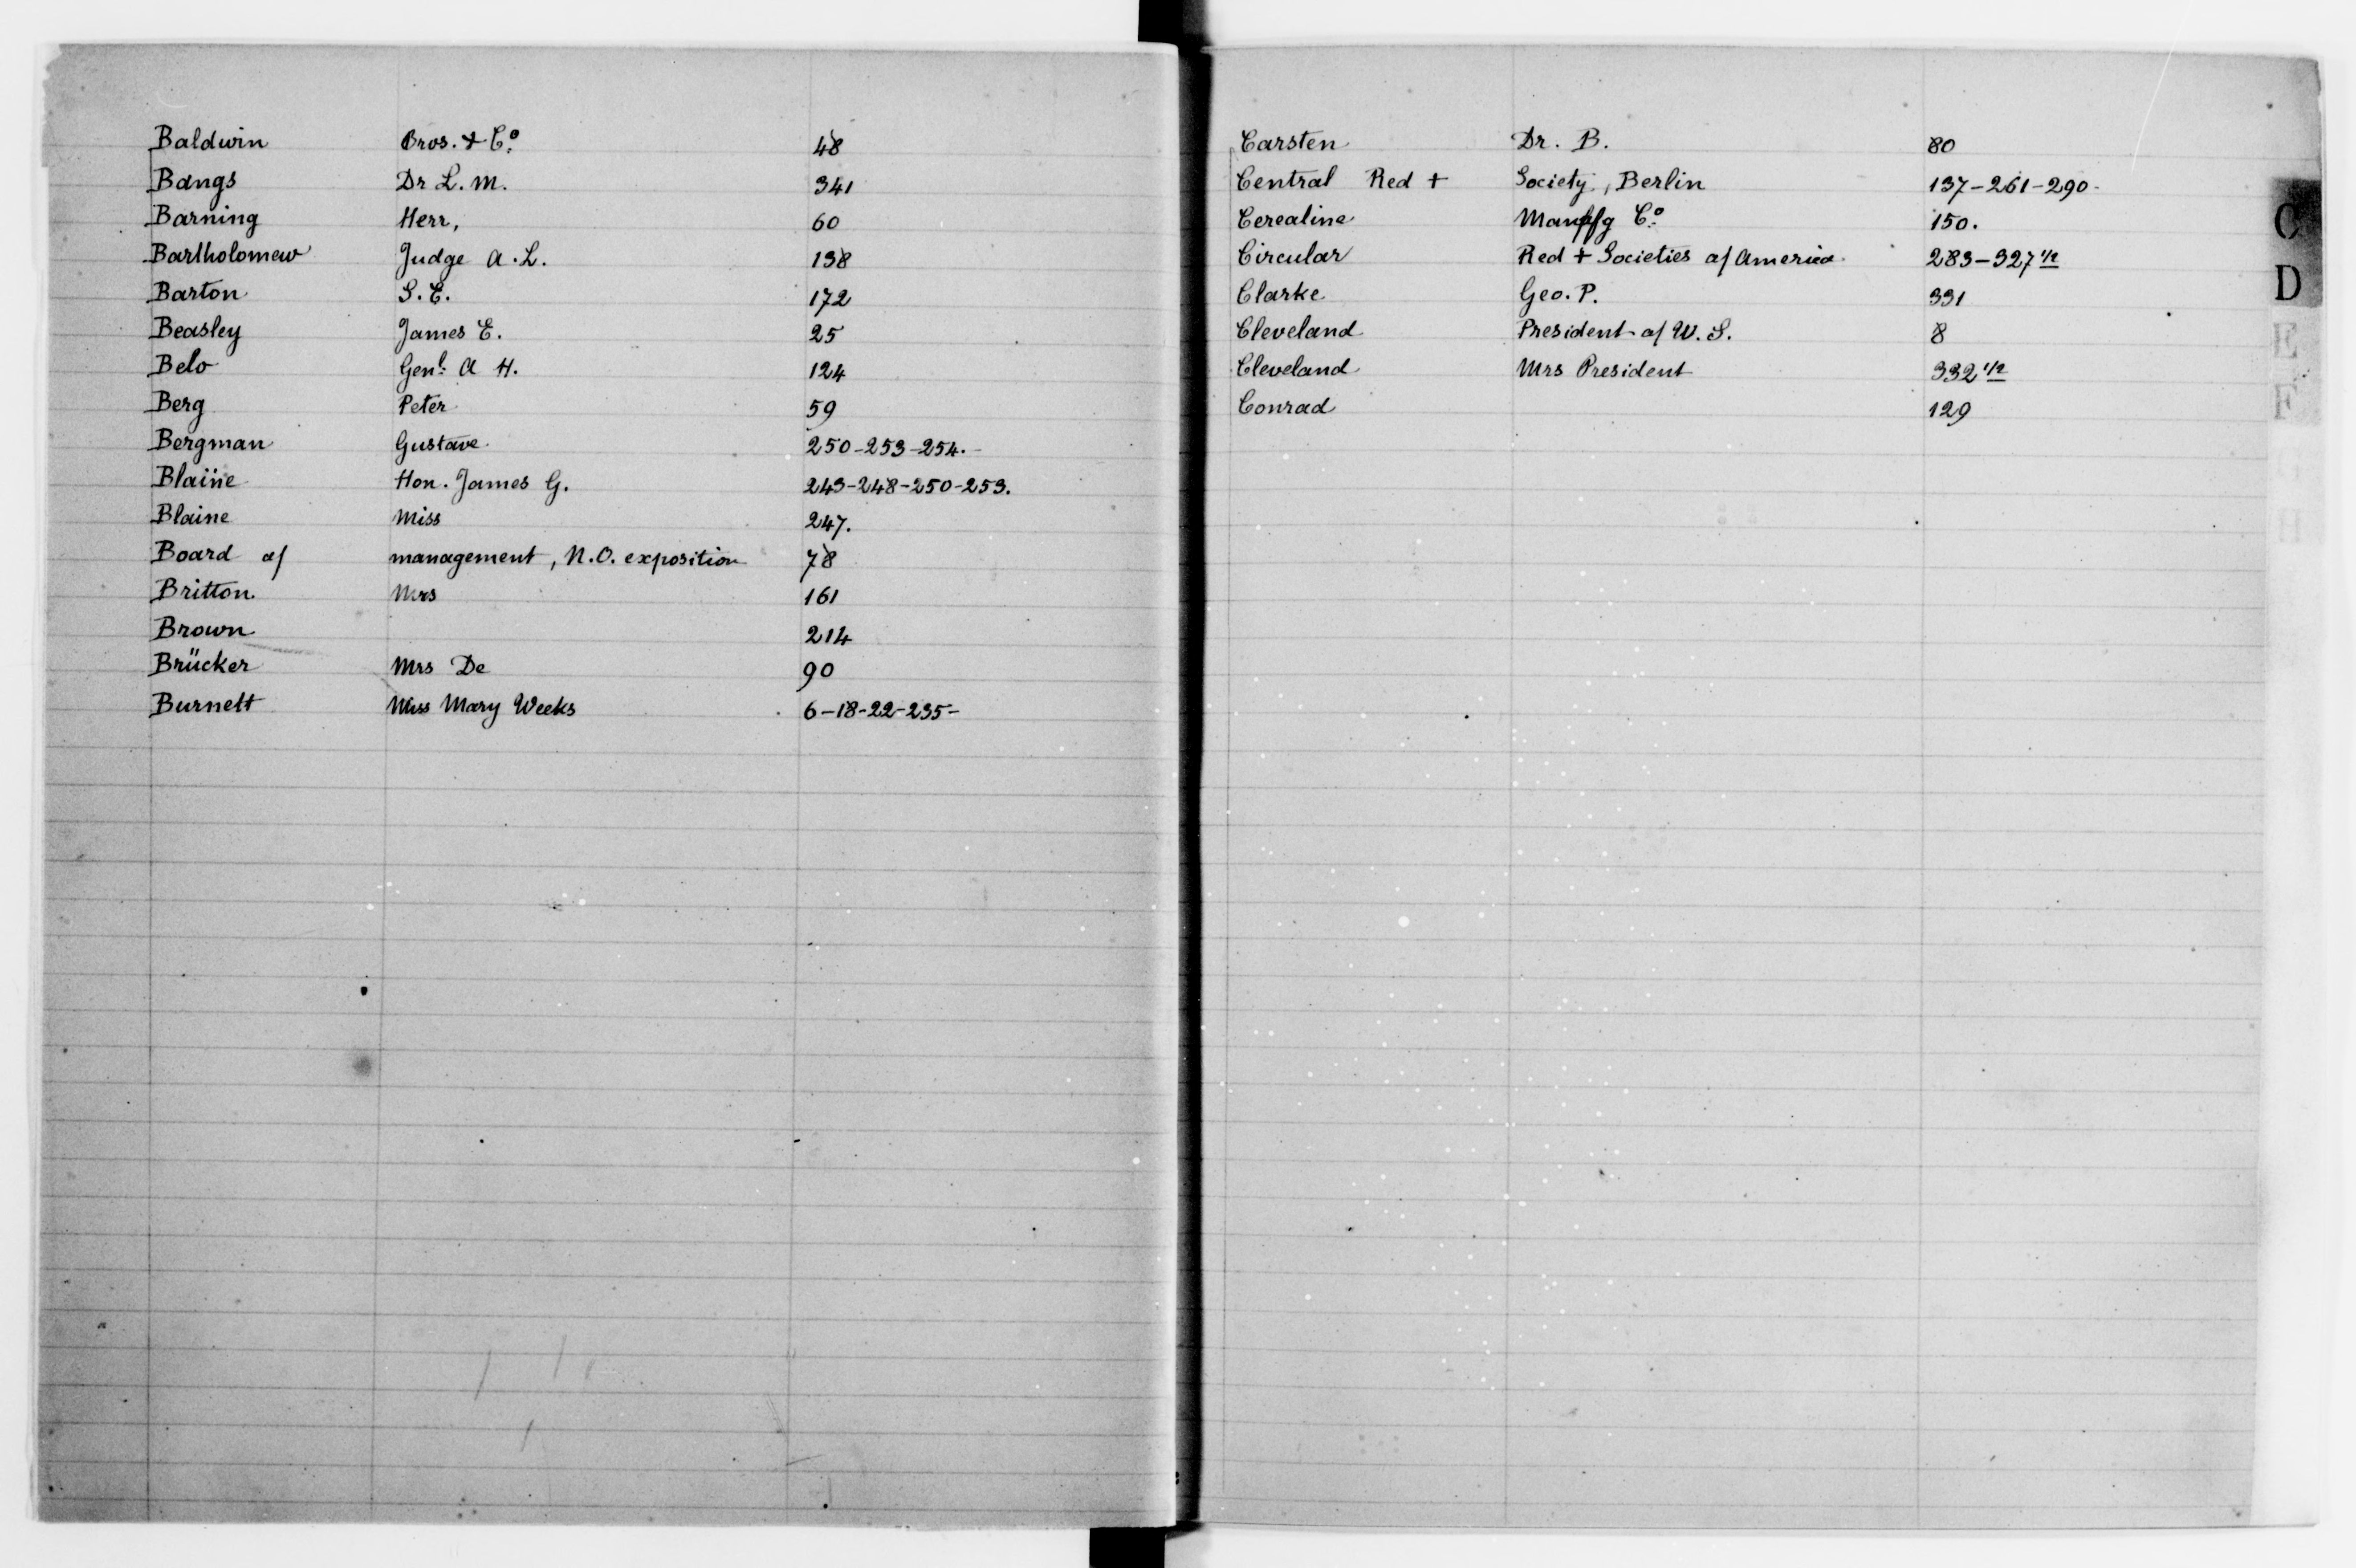 Baldwin Bros. & Co. 48
Bangs Dr L. M. 341
Barning Herr, 60
Bartholomew Judge A. L. 138
Barton S. E. 172
Beasley James E. 25
Belo Genl. A H. 124
Berg Peter 59
Bergman Gustave 250-253-254.-
Blaine Hon. James G. 243-248-250-253.
Blaine Miss 247.
Board of management, N.O. exposition 78
Britton Mrs 161
Brown 214
Brücker Mrs De 90
Burnett Miss Mary Weeks 6-18-22-235-
Carsten Dr. B. 80
Central Red + Society, Berlin 137-261-290-
Cerealine Co. 150.
Circular Red + Societies of America 283-327 1/2
Clarke Geo. P. 331
Cleveland President of U. S. 8
Cleveland Mrs President 332 1/2
Conrad 129
C
D
E
F
H